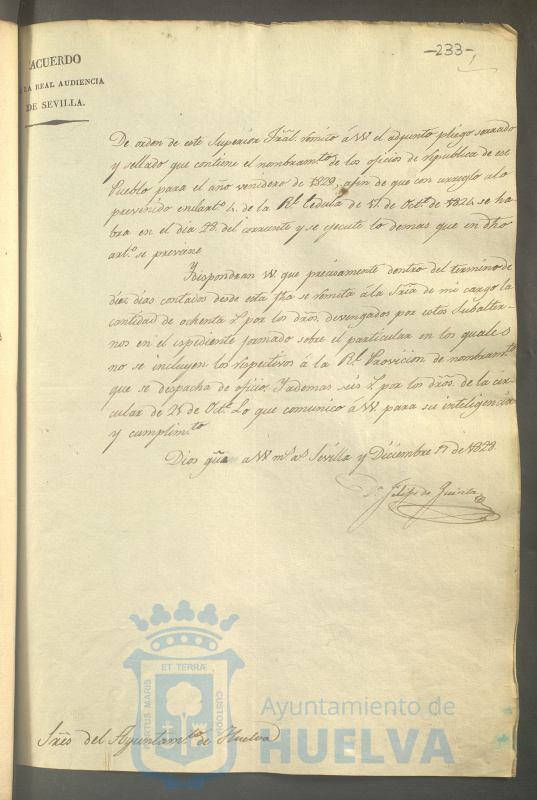 -233-
ACUERDO
LA REAL AUDIENCIA
DE SEVILLA.
De orden de este Superior Trãl. remito á VV el adjunto pliego serrado
y sellado que contiene el nombramto. de los oficios de republica de ese
Pueblo para el año venidero de 1829, afin de que con arreglo alo
prevenido enelarto. 4. de la Rl. Cedula de 17. de Octe. de 1824. se ha-
bra en el dia 28. del corriente y se ejecute lo demas que en dho
arto. se previene
Y dispondran VV. que precisamente dentro del termino de
diez dias contados desde esta fha se remita ála Sría de mi cargo la
cantidad de ochenta por los dros. devengados por estos Subalter-
nos en el espediente formado sobre el particular en los quales
no se incluyen los respectivos á la Rl. Provicion de nombramto.
que se despacha de oficio; Yademas seis por los dros. de la cir-
cular de 21 de Octe. Lo que comunico áVV para su inteligencia
y cumplimto.
Dios güe a VV ms. as. Sevilla y Diciembre 17 de 1828.
Dn. Felipe de
Sres del Ayuntamto. de Huelva
ET TERRÆ
PORTUS MARIS
CUSTODIA
Ayuntamiento de
HUELVA